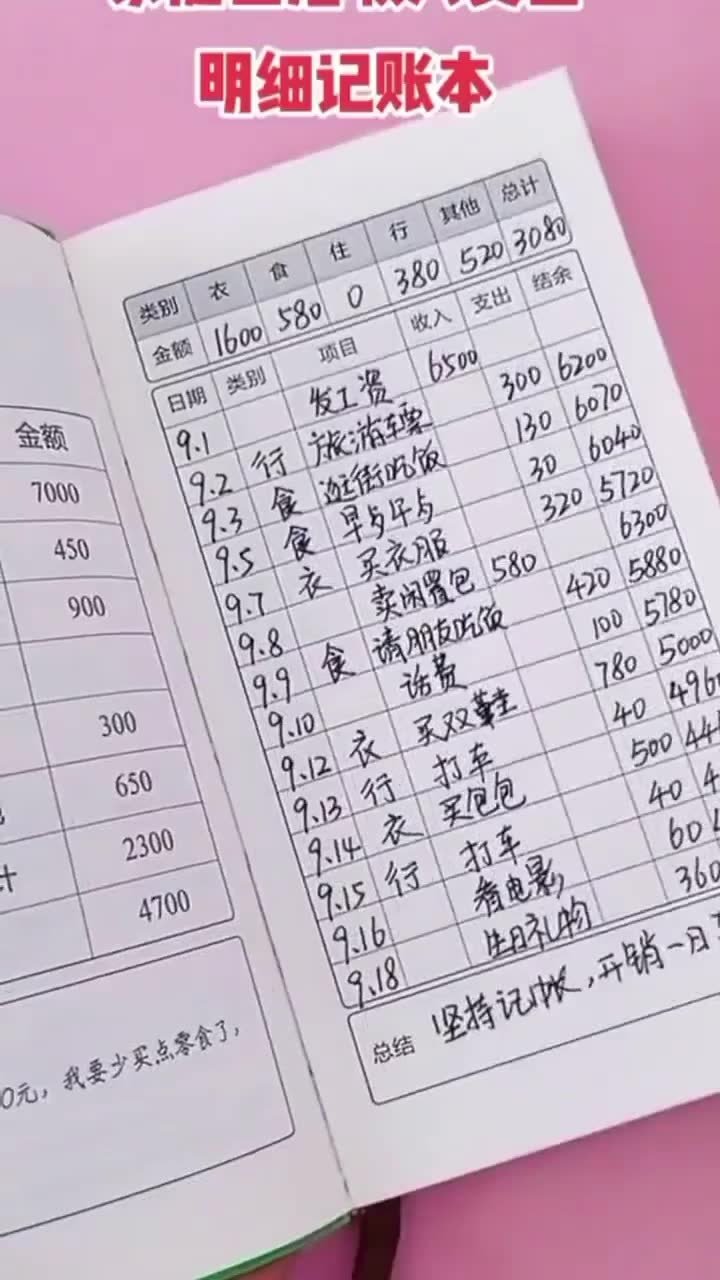 明细记账本
金额
7000
450
900
300
650
计
2300
4700
0元，我要少买点零食了，
类别 衣 食 住 行 其他 总计
金额 1600 580 0 380 520 3080
日期 类别 项目 收入 支出 结余
9.1 发工资 6500
9.2 行 旅游车票 300 6200
9.3 食 逛街吃饭 130 6070
9.5 食 早与午与 30 6040
9.7 衣 买衣服 320 5720
9.8 卖闲置包 580 6300
9.9 食 请朋友吃饭 420 5880
9.10 话费 100 5780
9.12 衣 买双鞋 780 5000
9.13 行 打车 40 496
9.14 衣 买包包 500 44
9.15 行 打车 40 4
9.16 看电影 60 4
9.18 生日礼物 360
总结 坚持记帐，开销一日